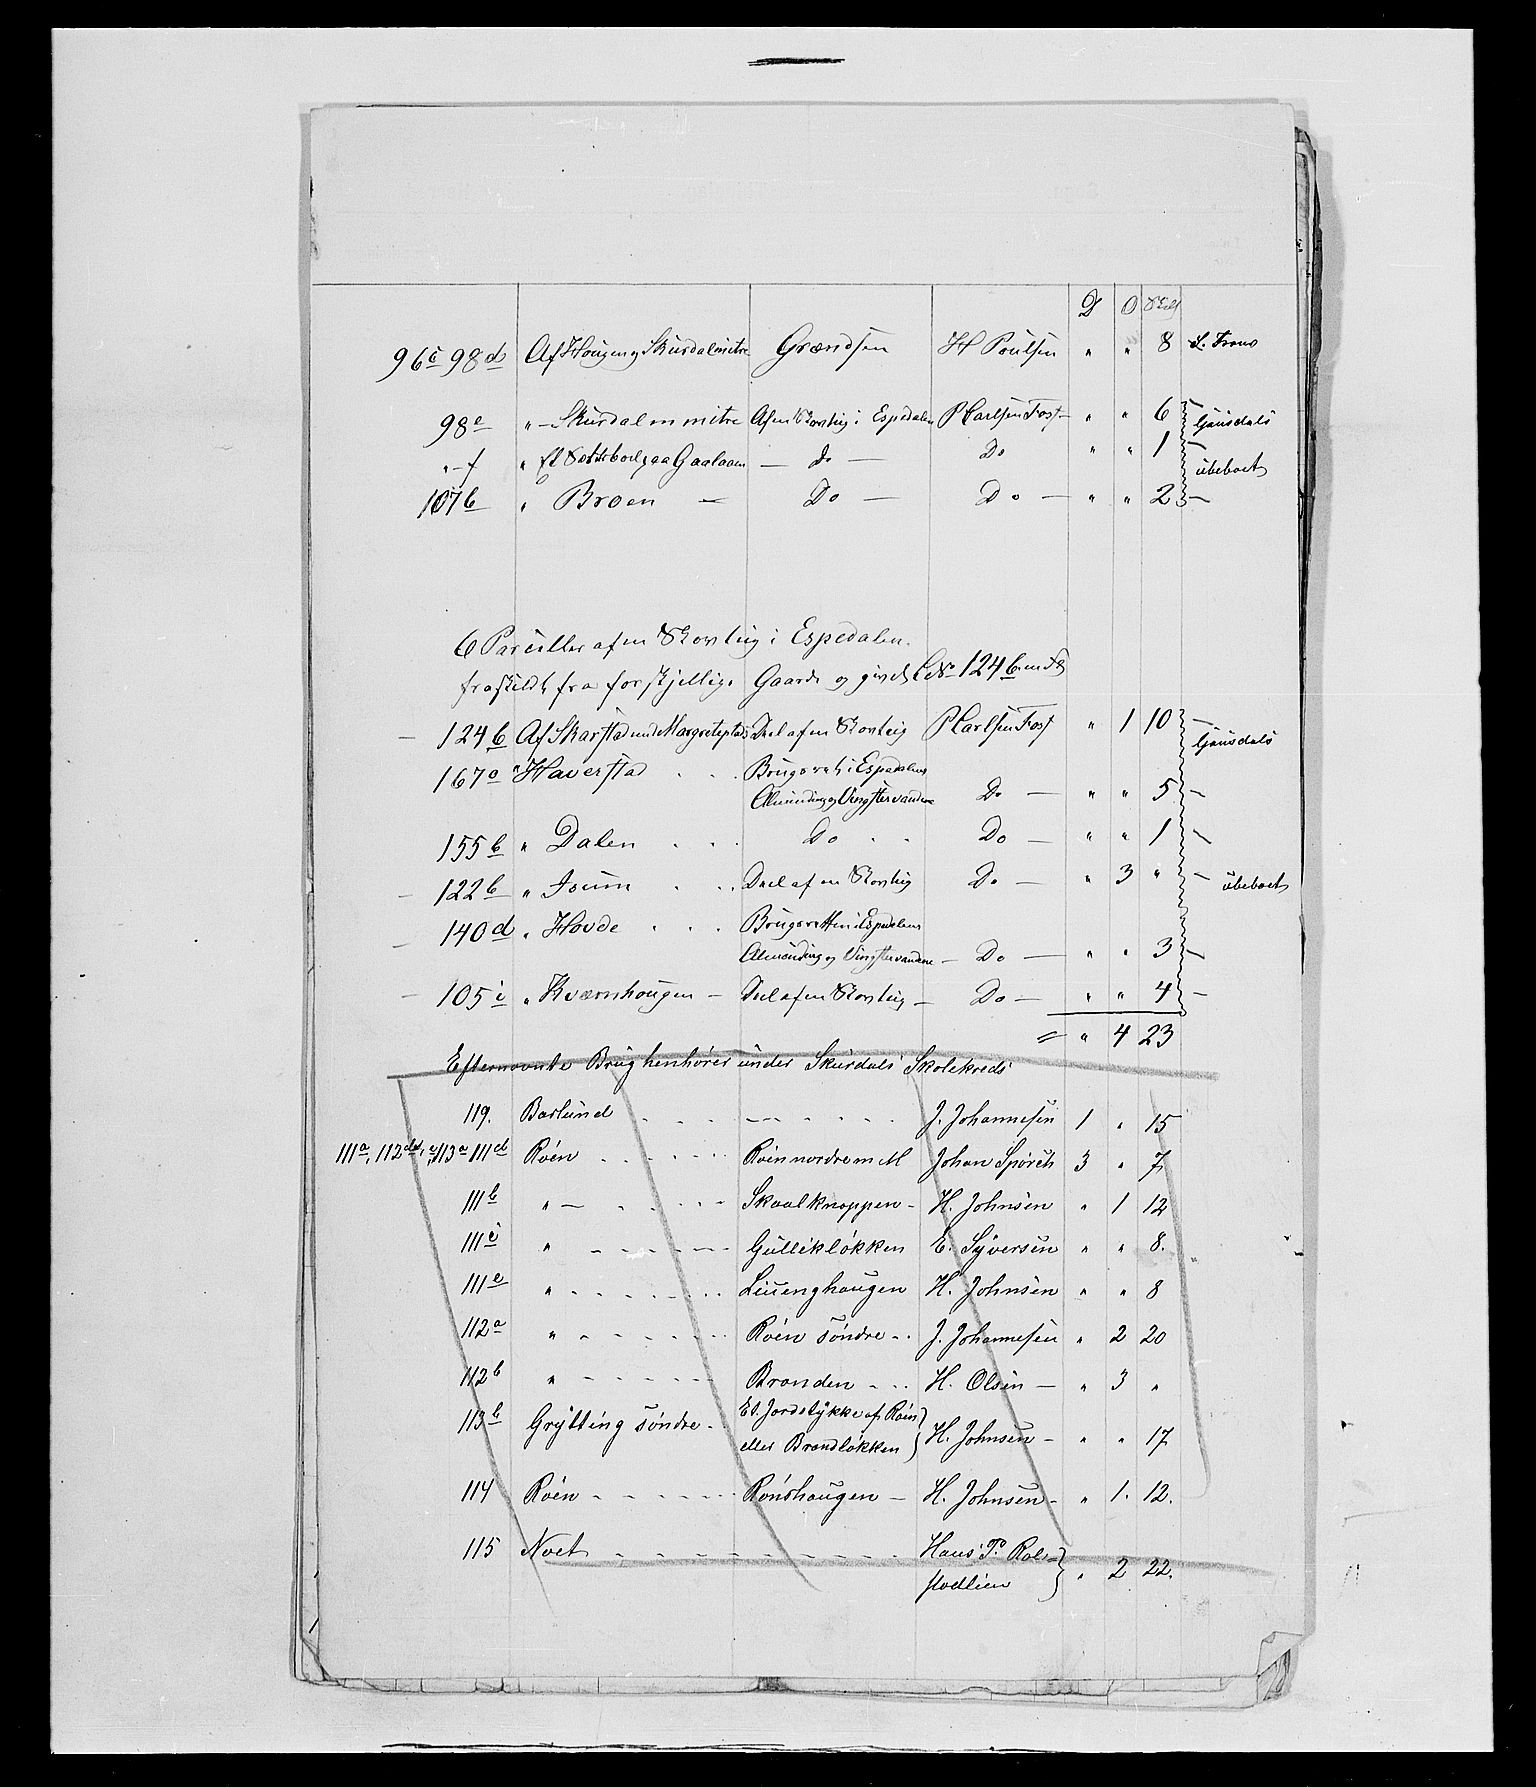 D O Skil
96c 98d Af Hougen og Skurdal mitre Grændsen H Poulsen " " 8 S. Frons
98e " – Skurdal m mitre Af en Skovteig i Espedalen P Carlsen Fosf – " " 6 Gausdals
" – f " Et Sæterboel paa Gaalaaen – Do – Do " " 1 – ubeboet
107b " Broen – Do – Do – " " 2 –
6 Parceller af en Skovteig i Espedalen
fraskildt fra forskjellige Gaarde og givet LNo 124b
– 124b Af Skarstad Deel af en Skovteig P Carlsen Fosf " 1 10 – Gausdals
167a " Haverstad . . . Brugsret i Espedalens
Alminding og Vingstervandene Do – " " 5 –
155b " Dalen . . . Do . . Do – " " 1 –
– 122b " Isum . . . Deel af en Skovteig Do – " 3 " – ubeboet
– 140d " Hovde . . . Brugsretten i Espedalens
Alminding og Vingstervandene – Do – " " 3 –
– 105i " Kværnhougen – Deel af en Skovteig – Do – " " 4 –
= " 4 23
Efternævnte Brug henhører under Skurdals Skolekreds
119. Baslund . . . – – . . . . J. Johannesen 1 " 15
111a, 112d, 113a 111d Roén . . . . . . Roén nordre m M Johan Spørck 3 " 7
111b " – . . . . . Skaalknappen – H. Johnsen " 1 12
111c " – – – – – – Gulliksløkken E. Syversen " " 8.
111e " – – – – – . . Liuenghaugen H. Johnsen " " 8
112a " – – – – – – Roén søndre – . J. Johannesen " 2 20
112b " – – – – – – Branden – . . H. Olsen – " 3 "
113b Grytting søndre – . Et Jordstykke af Roén
eller Brandløkken H. Johnsen – " " 17
114 Roén – – – – – – Rønshaugen – H. Johnsen – " 1. 12.
115 Noet – – – – – – – – – – Hans P. Rol=
stadlien " 2 22.